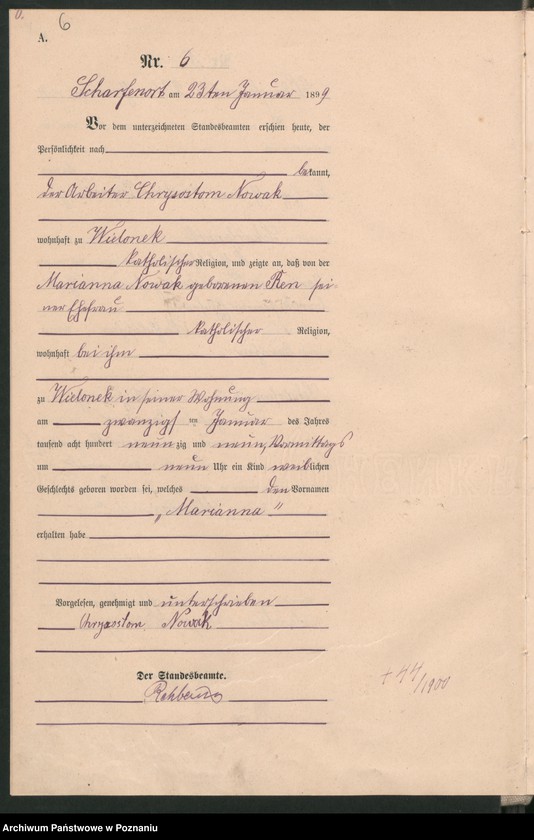 6
A.
Nr. 6
Scharfenort am 23ten Januar 1899
Vor dem unterzeichneten Standesbeamten erschien heute, der
Persönlichkeit nach
bekannt,
der Arbeiter Chrysostom Nowak
wohnhaft zu Widonek
katholischer Religion, und zeigte an, daß von der
Marianna Nowak geborenen Ren sei-
ner Ehefrau
katholischer Religion,
wohnhaft bei ihm
zu Widonek in seiner Wohnung
am zwanzigst en Januar des Jahres
tausend acht hundert neunzig und neun, Vormittags
um neun Uhr ein Kind weiblichen
Geschlechts geboren worden sei, welches den Vornamen
„Marianna“
erhalten habe
Vorgelesen, genehmigt und unterschrieben
Chrysostom Nowak
Der Standesbeamte.
+ 44/1900
Archiwum Państwowe w Poznaniu